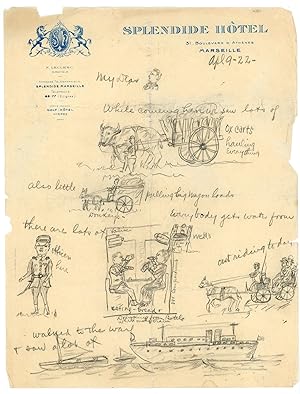 SPLENDIDE HÔTEL
31, BOULEVARD D'ATHÈNES
MARSEILLE
SPLENDIDE-MARSEILLE
GOLF-HÔTEL
HYÈRES
Apl 9-22-
My dear
While coming here we saw lots of
Ox carts
hauling
everything
also little
Donkeys
pulling big wagon loads
everybody gets water from
wells
there are lots of
soldiers
here
eating - bread -
out riding to day
walked to the
& saw a lot of